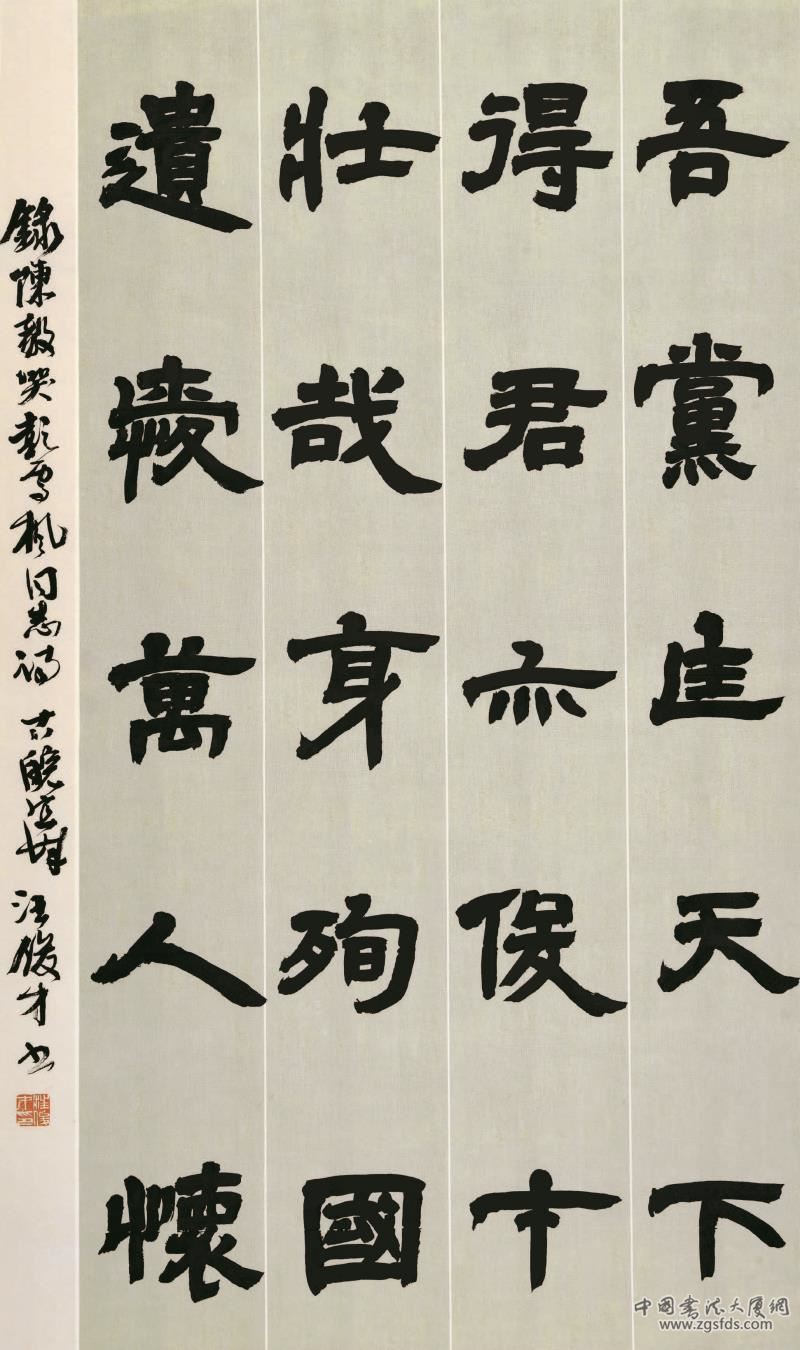 吾黨匡天下
得君亦俊才
壯哉身殉國
遺愛萬人懷
錄陳毅哭彭雪楓同志詩 古皖宜城 汪俊才書
汪俊才印
中國書法大廈網
www.zgsfds.com